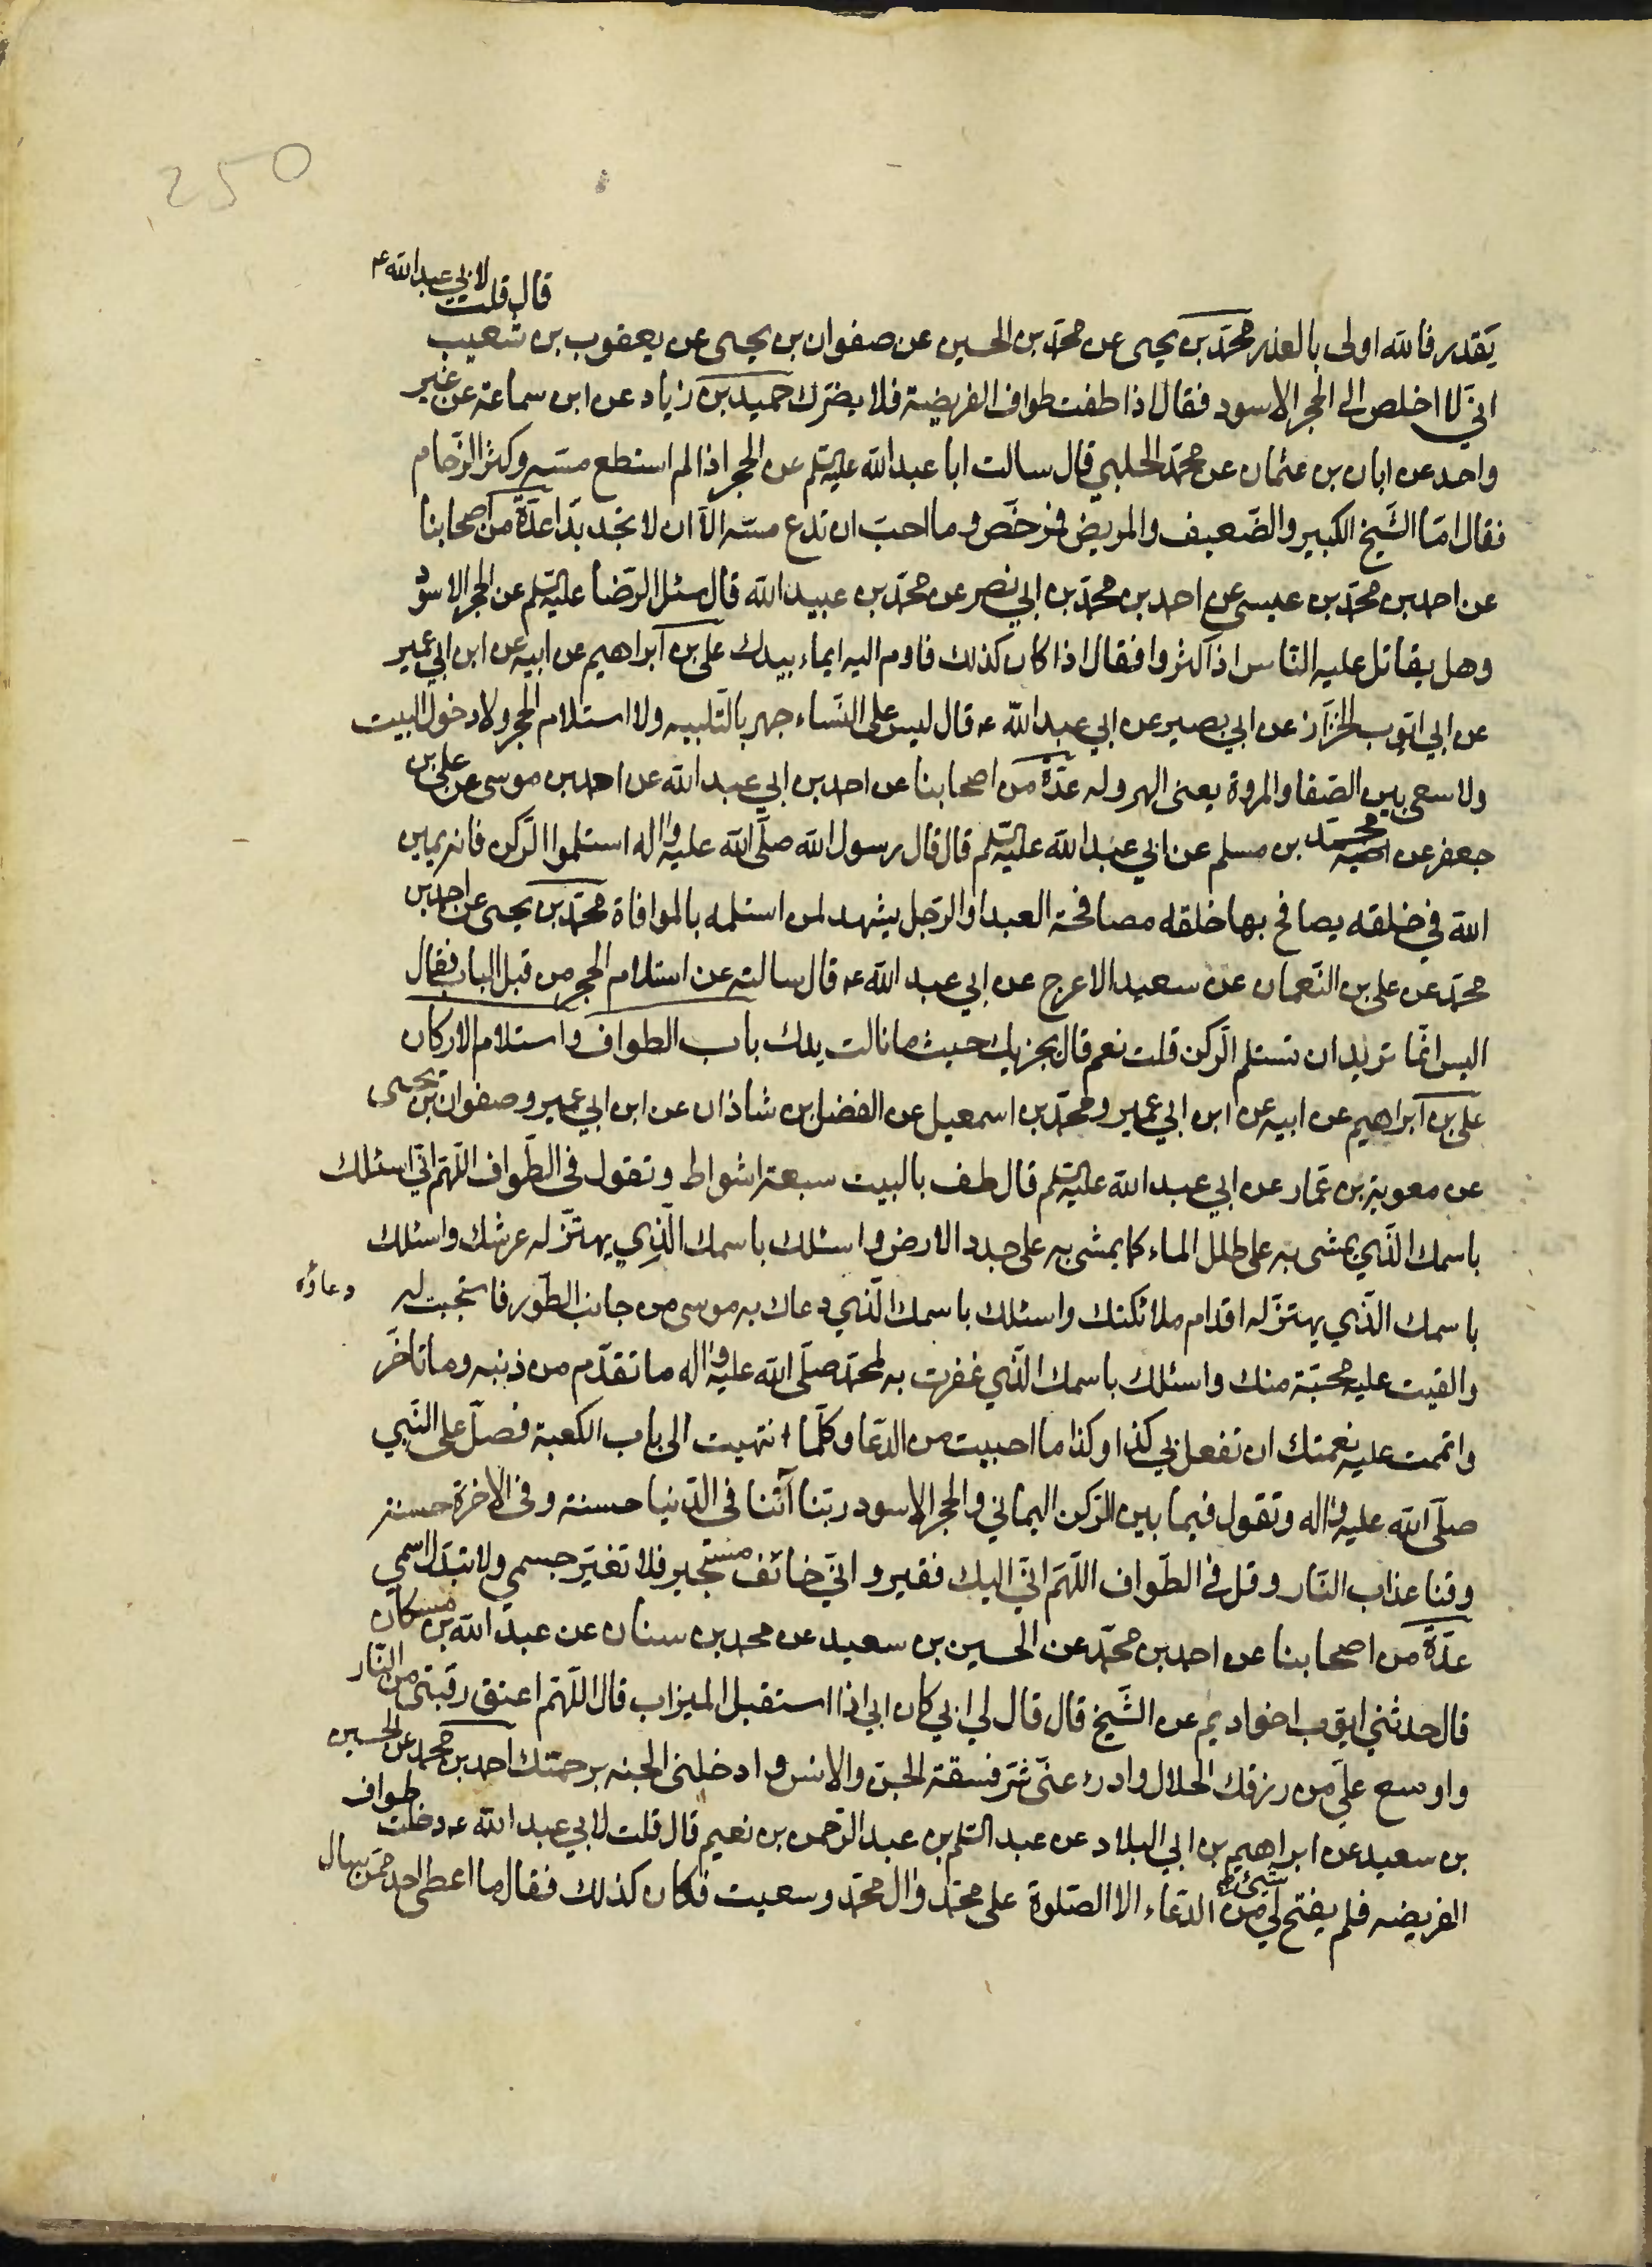 250
قال قلت لابي عبدالله ع
يقدر فالله اولى بالعذر محمد بن يحيى عن محمد بن الحسين عن صفوان بن يحيى عن يعقوب بن شعيب
انّي لا اخلص الى الحجر الاسود فقال اذا طفت طواف الفريضة فلا يضرّك حميد بن زياد عن ابن سماعة عن غير
واحد عن ابان بن عثمان عن محمد الحلبي قال سالت ابا عبدالله عليه السلم عن الحجر اذا لم استطع مسّه وكثر الزّحام
فقال امّا الشّيخ الكبير والضّعيف والمريض فمرخّص وما احبّ ان تدع مسّه الّا ان لا تجد بدّا عدّة من اصحابنا
عن احمد بن محمّد بن عيسى عن احمد بن محمّد بن ابي نصر عن محمّد بن عبيد الله قال سئل الرّضا عليه السلم عن الحجر الاسود
وهل يقاتل عليه النّاس اذا كثروا فقال اذا كان كذلك فاوم اليه ايماء بيدك على بن ابراهيم عن ابيه عن ابن ابي عمير
عن ابي ايّوب الخزّاز عن ابي بصير عن ابي عبد الله ع قال ليس على النّساء جهر بالتّلبيه ولا استلام الحجر ولا دخول البيت
ولا سعى بين الصّفا والمروة يعنى الهروله عدّة من اصحابنا عن احمد بن ابي عبد الله عن احمد بن موسى عن على بن
جعفر عن اخيه محمّد بن مسلم عن ابي عبد الله عليه السلم قال قال رسول الله صلّى الله عليه واله استلموا الرّكن فانه يمين
الله في خلقه يصافح بها خلقه مصافحة العبد او الرّجل يشهد لمن استلمه بالموافاة محمّد بن يحيى عن احمد بن
محمّد عن على بن النّعمان عن سعيد الاعرج عن ابي عبد الله ع قال سالته عن استلام الحجر من قبل الباب فقال
اليس انّما تريد ان تستلم الرّكن قلت نعم قال يجزيك حيث ما نالت يدك باب الطواف واستلام الاركان
على بن ابراهيم عن ابيه عن ابن ابي عمير ومحمّد بن اسمعيل عن الفضل بن شاذان عن ابن ابي عمير وصفوان بن يحيى
عن معوية بن عمّار عن ابي عبد الله عليه السلم قال طف بالبيت سبعة اشواط وتقول في الطّواف اللّهمّ انّي اسئلك
باسمك الّذي يمشى به على طلل الماء كما يمشى به على جدد الارض واسئلك باسمك الّذي يهتزّ له عرشك واسئلك
باسمك الّذي يهتزّ له اقدام ملائكتك واسئلك باسمك الّذي دعاك به موسى من جانب الطّور فاستجبت له دعاؤه
والقيت عليه محبّة منك واسئلك باسمك الّذي غفرت به لمحمّد صلّى الله عليه واله ما تقدّم من ذنبه وما تاخّر
واتممت عليه نعمتك ان تفعل بي كذا وكذا ما احببت من الدّعا وكلّما انتهيت الى باب الكعبة فصلّ على النّبي
صلّى الله عليه واله وتقول فيما بين الرّكن اليماني والحجر الاسود ربّنا آتنا في الدّنيا حسنة وفي الاخرة حسنة
وقنا عذاب النّار وقل في الطّواف اللّهمّ انّي اليك فقير وانّي خائف مستجير فلا تغيّر جسمي ولا تبدّل اسمي
عدّة من اصحابنا عن احمد بن محمّد عن الحسين بن سعيد عن محمد بن سنان عن عبد الله بن مسكان
قال حدثني ايّوب اخو اديم عن الشّيخ قال قال لي ابي كان ابي اذا استقبل الميزاب قال اللّهمّ اعتق رقبتي من النّار
واوسع علىّ من رزقك الحلال وادرء عنّى شرّ فسقة الجنّ والانس وادخلني الجنه برحمتك احمد بن محمد عن الحسين
بن سعيد عن ابراهيم بن ابي البلاد عن عبد السّلم بن عبد الرّحمن بن نعيم قال قلت لابي عبد الله ع دخلت طواف
الفريضه فلم يفتح لي شيئ من الدّعاء الا الصّلوة على محمّد وال محمّد وسعيت فكان كذلك فقال ما اعطى احد ممّن سال